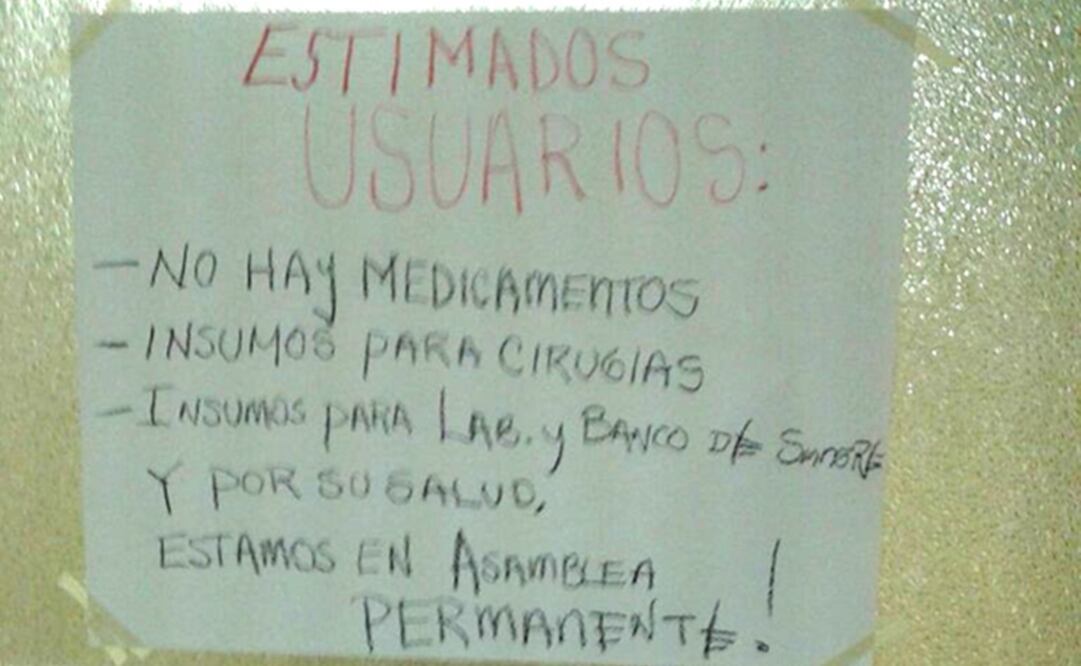 ESTIMADOS
USUARIOS:
- NO HAY MEDICAMENTOS
- INSUMOS PARA CIRUGIAS
- INSUMOS PARA LAB. Y BANCO DE SANGRE
Y POR SU SALUD,
ESTAMOS EN ASAMBLEA
PERMANENTE!